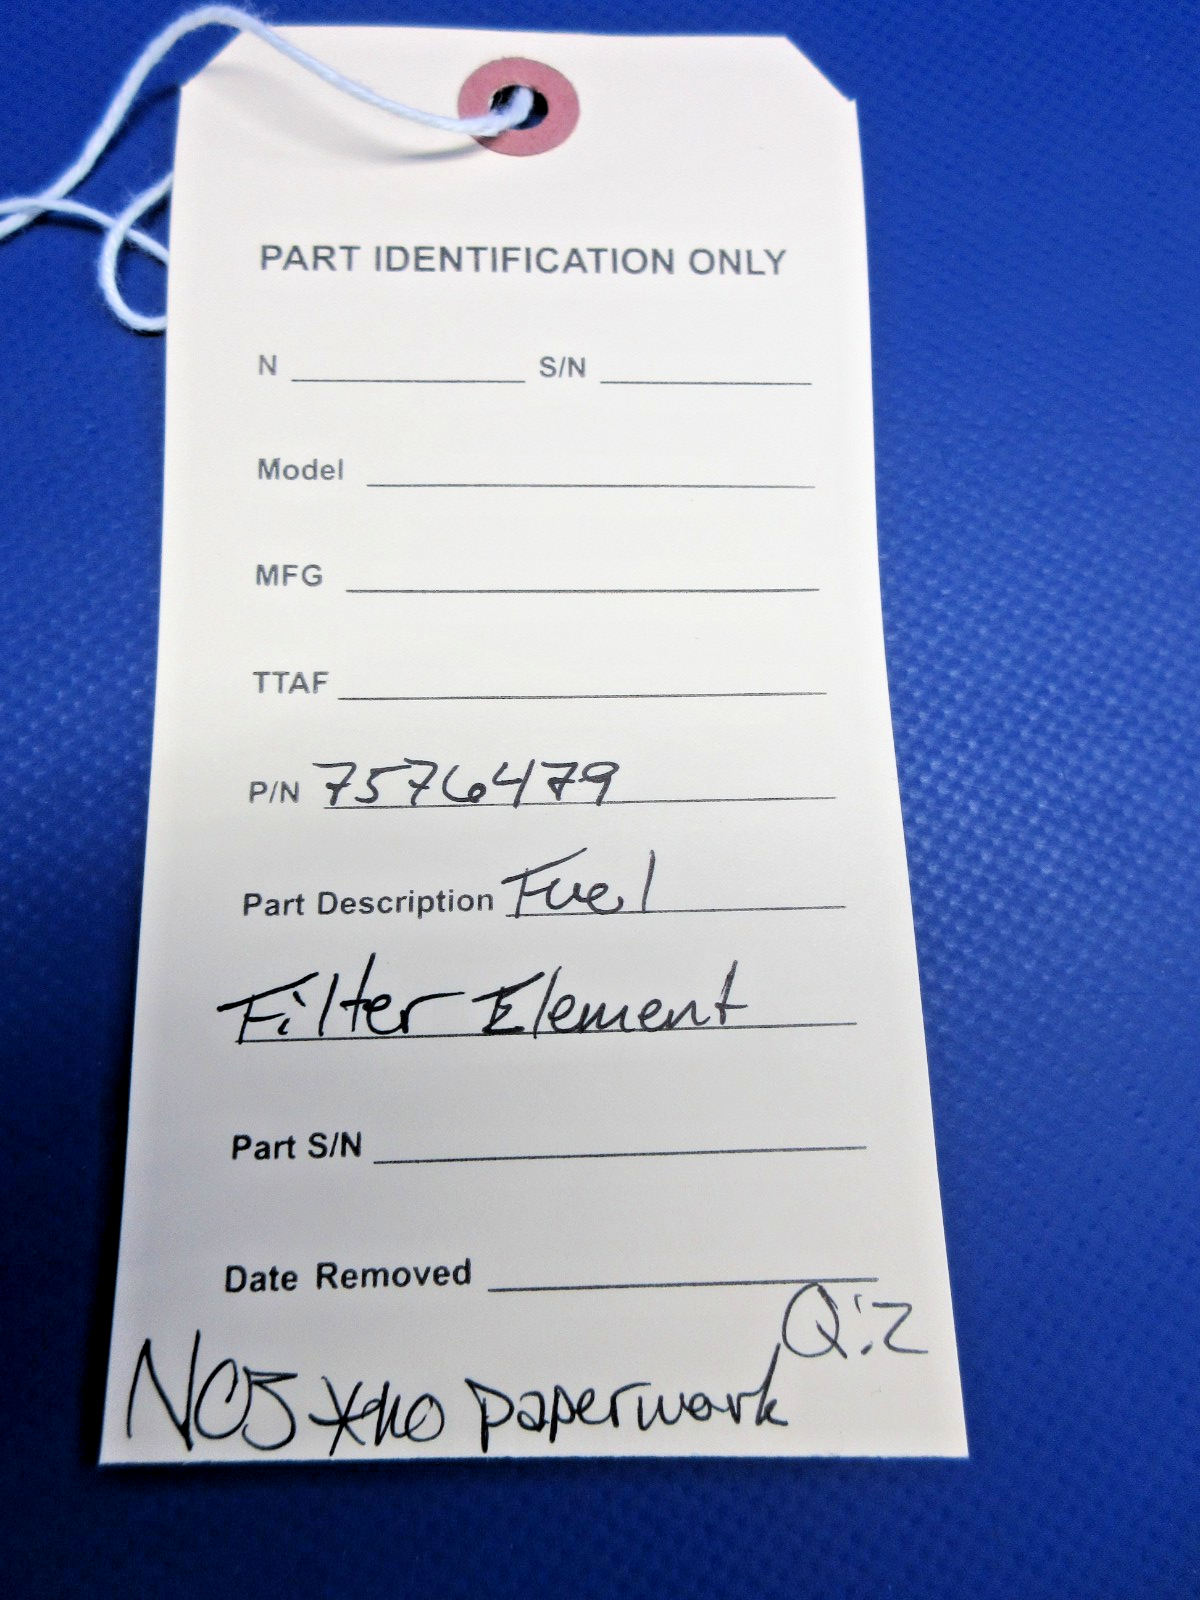 PART IDENTIFICATION ONLY
N S/N
Model
MFG
TTAF
P/N 7576479
Part Description Fuel
Filter Element
Part S/N
Date Removed
Q:2
*no paperwork